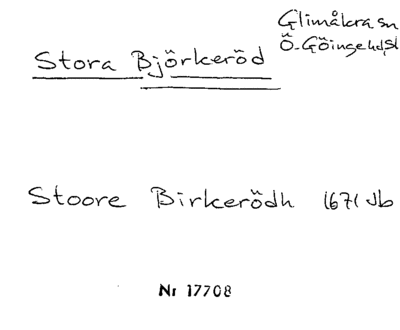 Stora Björkeröd
Glimåkra sn
Ö-Göinge hd, Sk
Stoore Birkerödh 1671 Jb
Nr 17708